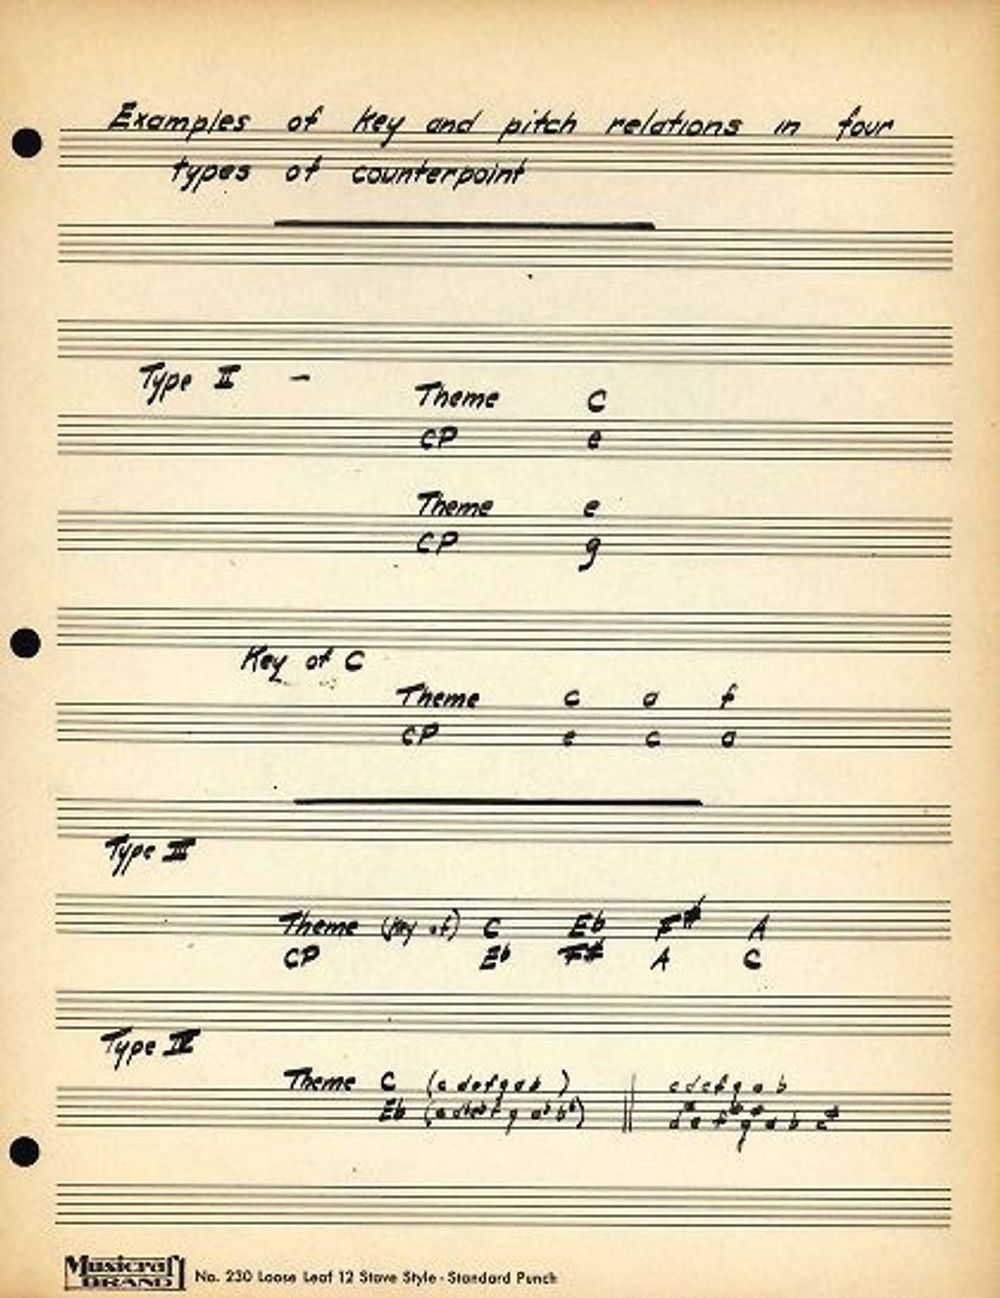 Examples of Key and pitch relations in four
types of counterpoint
Type II —
Theme C
CP e
Theme e
CP g
Key of C
Theme c a f
CP e c a
Type III
Theme (Key of) C Eb F# A
CP Eb F# A C
Type IV
Theme C (c d e f g a b) || c d e f g a b
Eb
Musicraft BRAND No. 230 Loose Leaf 12 Stave Style - Standard Punch